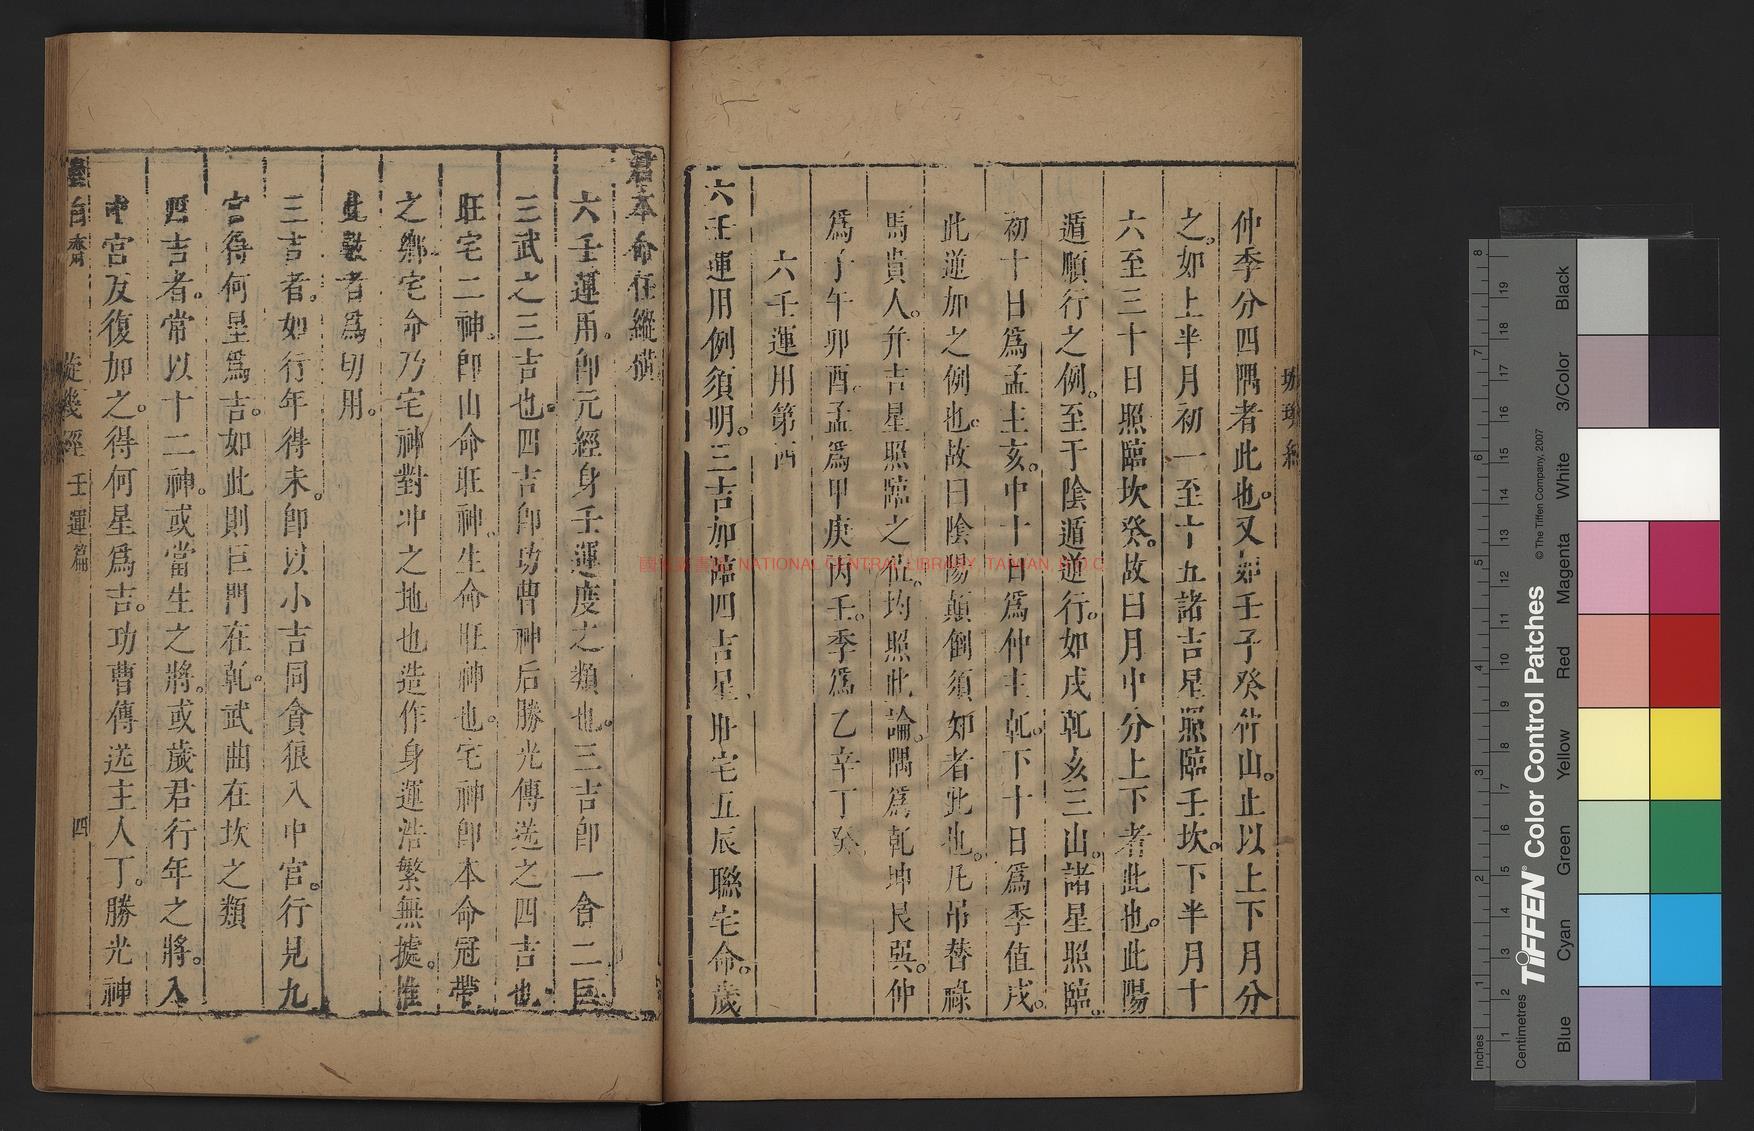 仲季分四隅者此也。又如壬子癸仵山。止以上下月分
之。如上半月初一至十五諸吉星照臨壬坎。下半月十
六至三十日照臨坎癸。故曰月中分上下者此也。此陽
遁順行之例。至于陰遁逆行。如戌乾亥三山。諸星照臨。
初十日爲孟主亥。中十日爲仲主乾。下十日爲季值戌。
此逆加之例也。故曰陰陽顛倒須知者此也。凡吊替祿
馬貴人。并吉星照臨之位。均照此論。隅爲乾坤艮巽。仲
爲子午卯酉。孟爲甲庚丙壬。季爲乙辛丁癸
六壬運用第西
六壬運用例須明。三吉加臨四吉星。旺宅五辰聯宅命。歲
君本命在縱橫
六壬運用。卽元經身壬運度之類也。三吉卽一貪二巨
三武之三吉也。四吉卽功曹神后勝光傳送之四吉也
旺宅二神。卽山命旺神。生命旺神也。宅神卽本命冠帶
之鄉宅命乃宅神對冲之地也造作身運浩繁無據。惟
此數者爲切用。
三吉者。如行年得未。卽以小吉同貪狼入中宮。行見九
宮得何星爲吉。如此則巨門在乾。武曲在坎之類
四吉者。常以十二神。或當生之將。或歲君行年之將。入
中宮反復加之。得何星爲吉。功曹傳送主人丁。勝光神
壬運篇
四
國家圖書館 NATIONAL CENTRAL LIBRARY, TAIWAN, R.O.C
TIFFEN® Color Control Patches
© The Tiffen Company, 2007
Inches
Centimetres
Blue
Cyan
Green
Yellow
Red
Magenta
White
3/Color
Black